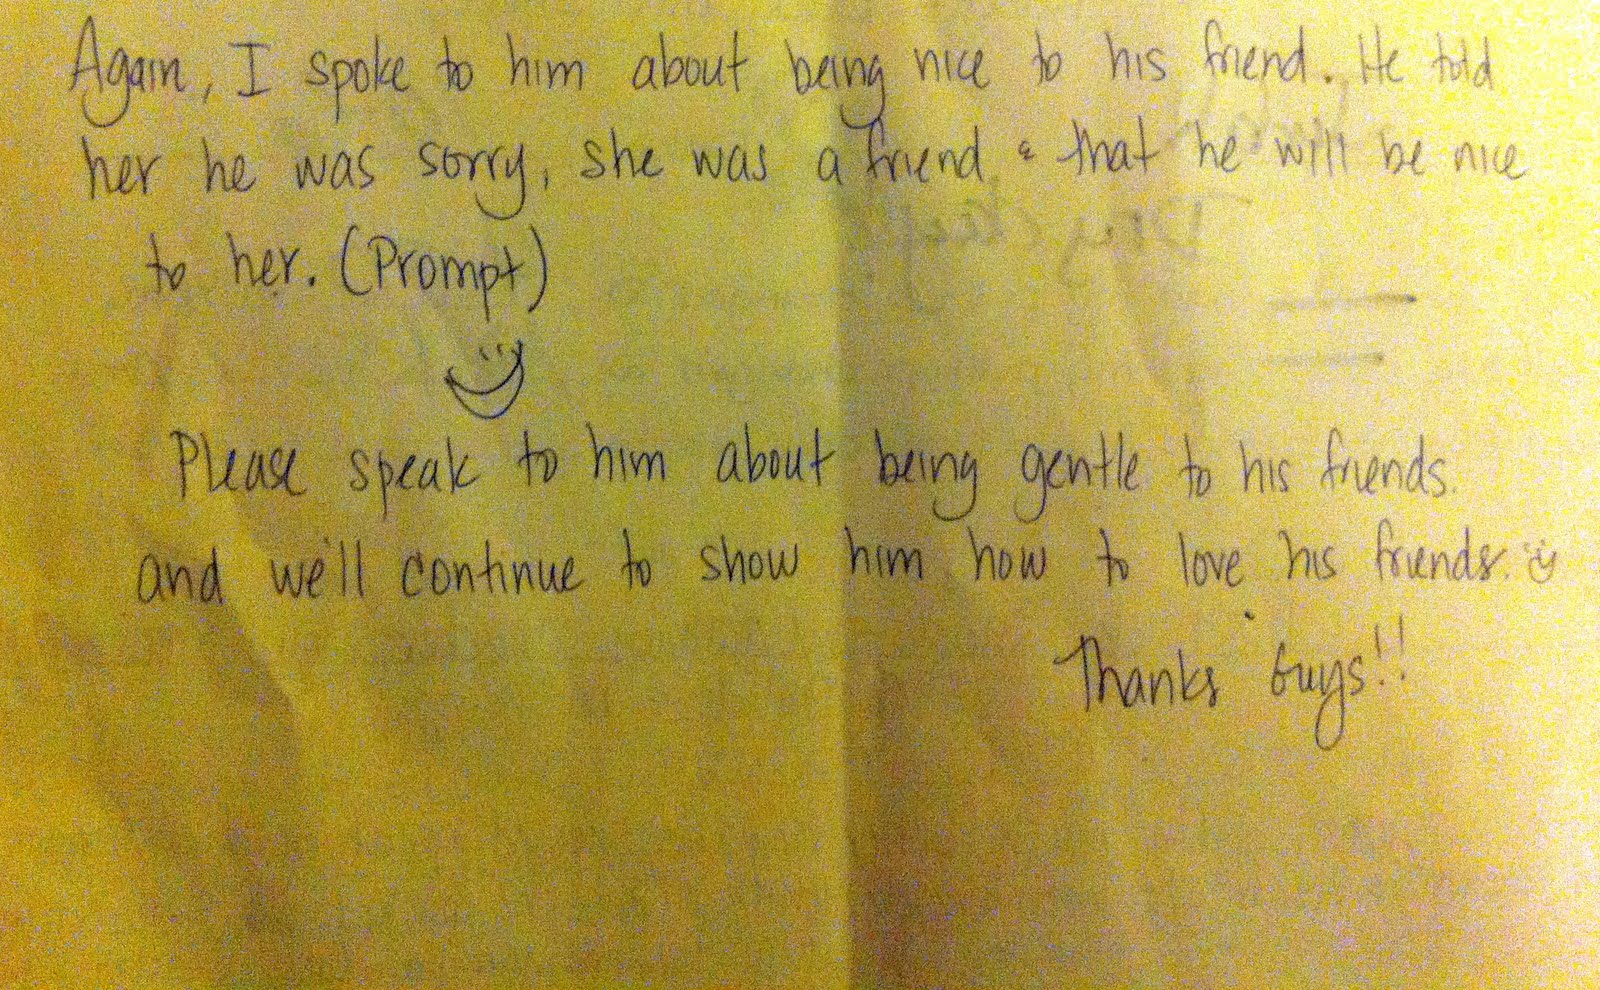 Again, I spoke to him about being nice to his friend. He told
her he was sorry, she was a friend & that he will be nice
to her. (Prompt)
Please speak to him about being gentle to his friends.
and we'll continue to show him how to love his friends.
Thanks Guys!!